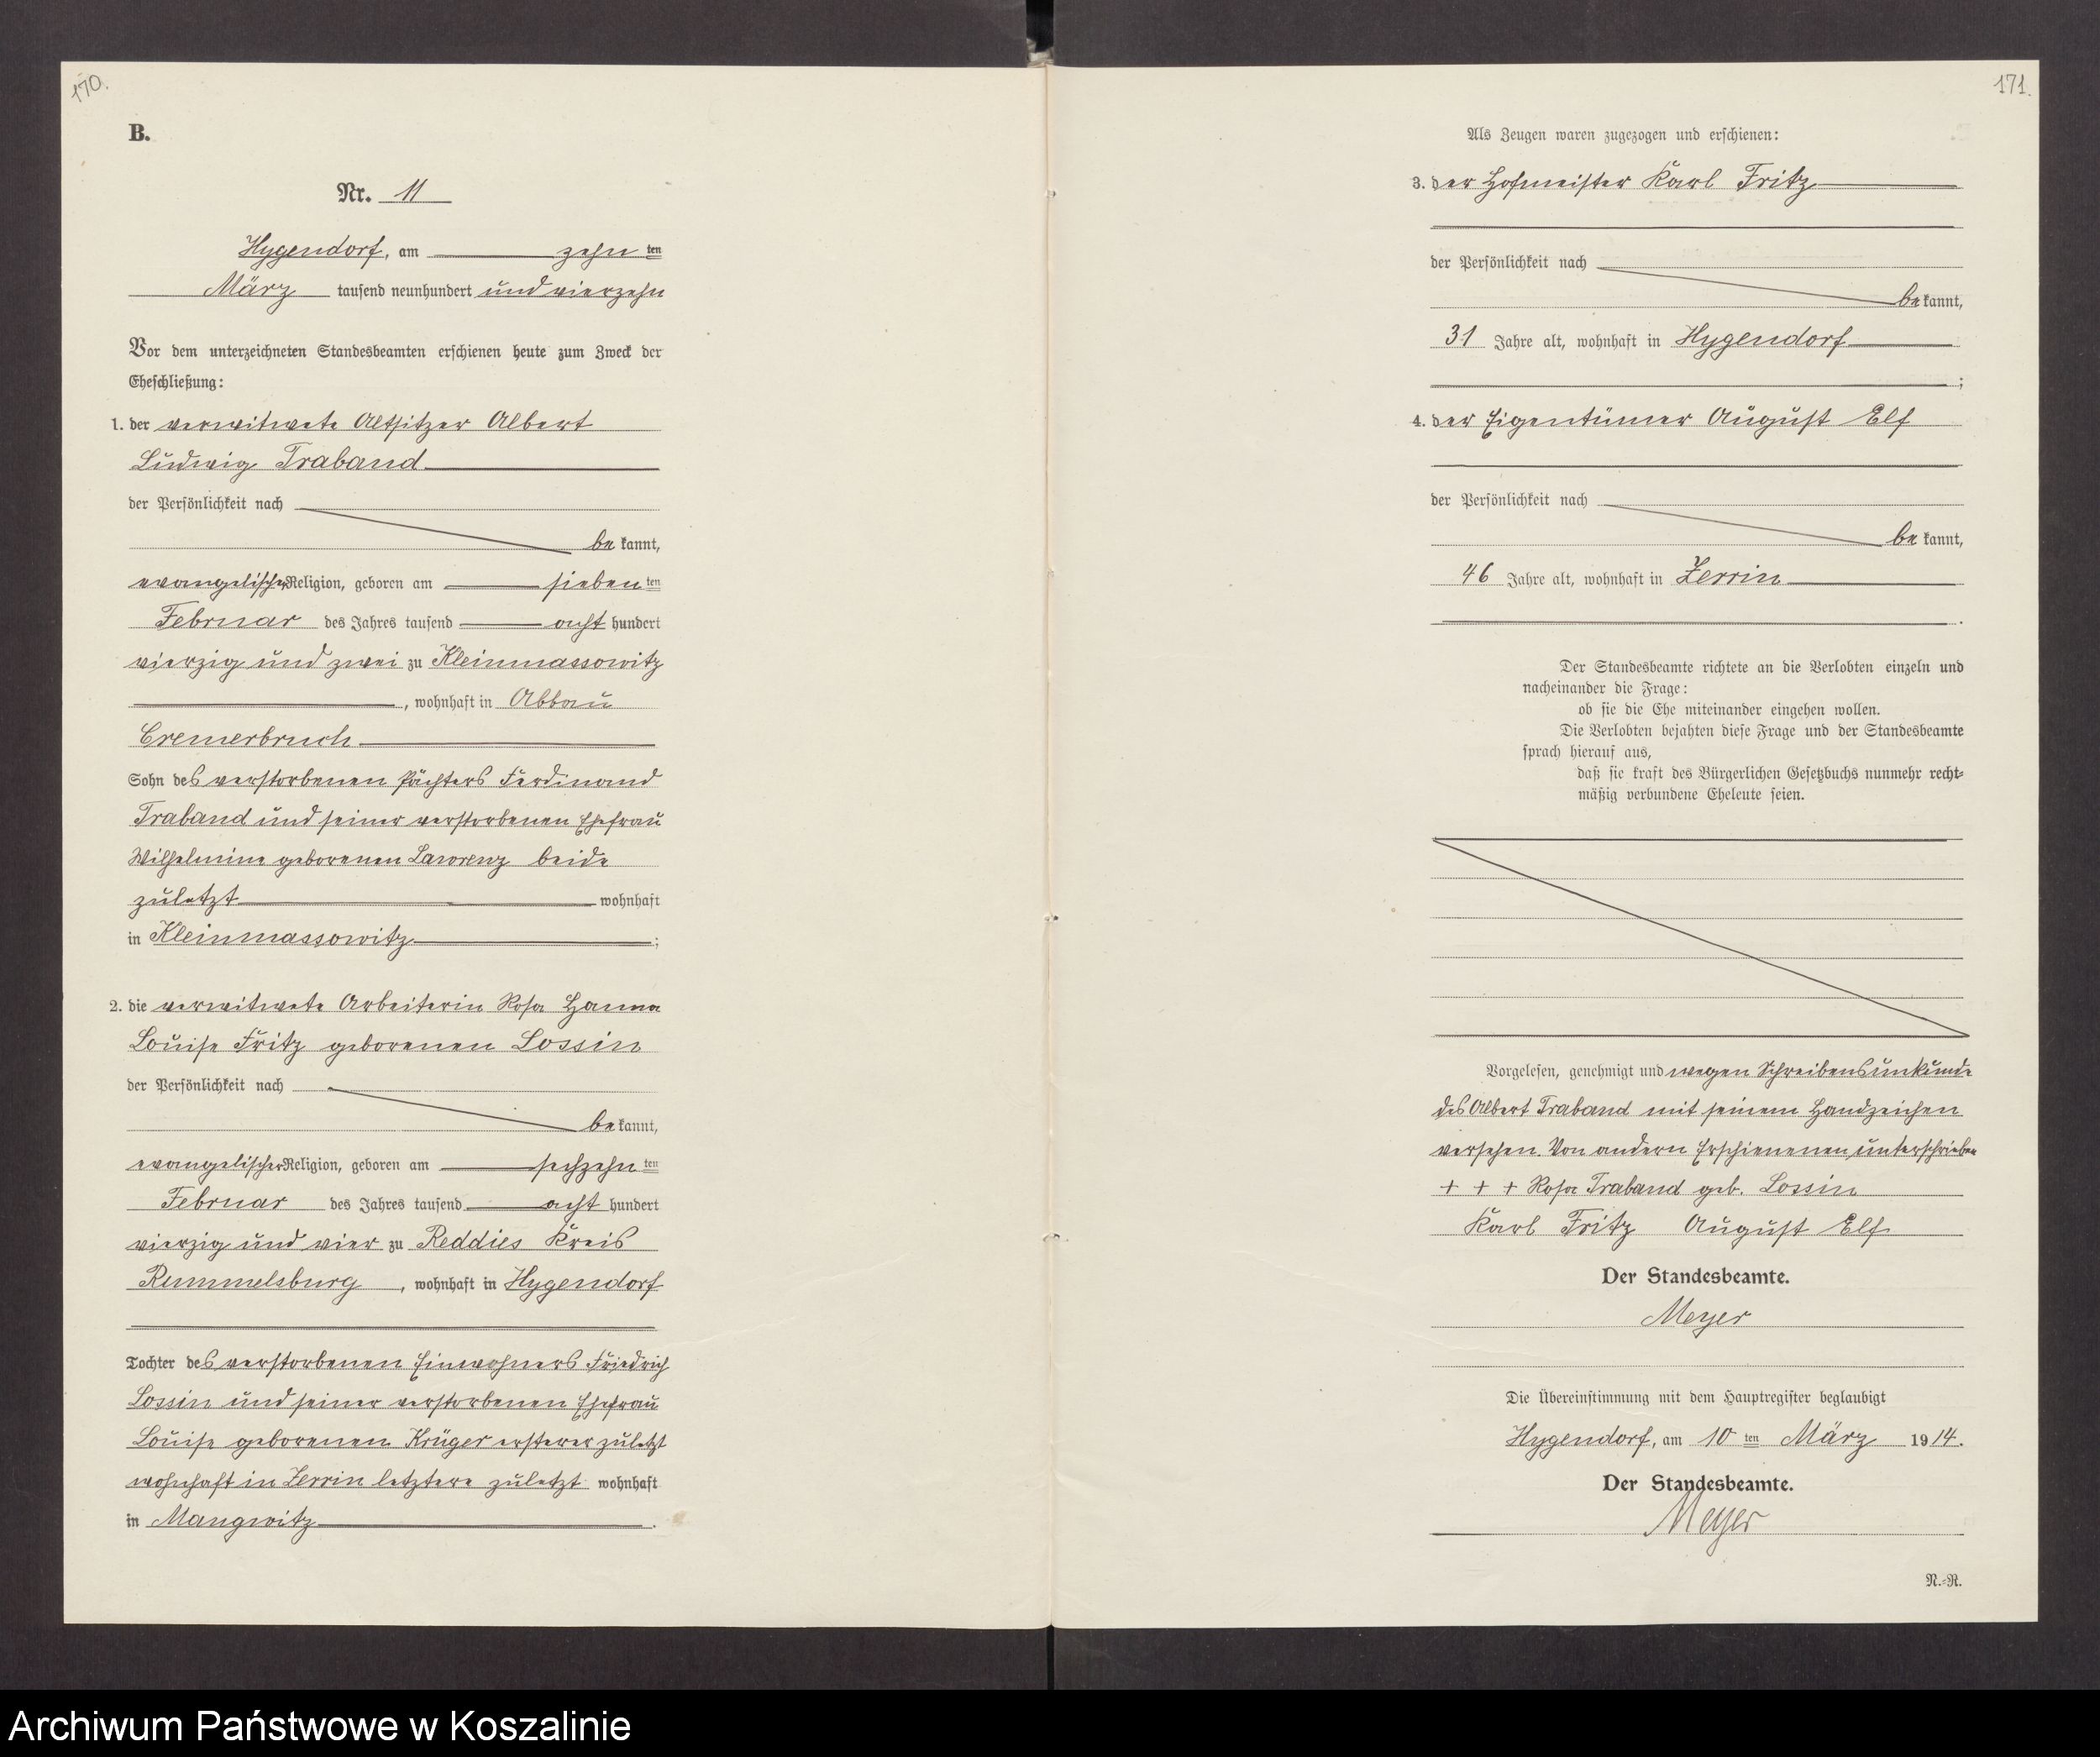 170.
B.
Nr. 11
Hygendorf, am zehn ten
März tausend neunhundert und vierzehn
Vor dem unterzeichneten Standesbeamten erschienen heute zum Zweck der
Eheschließung:
1. der verwitwete Altsitzer Albert
Ludwig Traband
der Persönlichkeit nach
be kannt,
evangelischer Religion, geboren am sieben ten
Februar des Jahres tausend acht hundert
vierzig und zwei zu Kleinmassowitz
, wohnhaft in Abbau
Cremerbruch
Sohn des verstorbenen Pächters Ferdinand
Traband und seiner verstorbenen Ehefrau
Wilhelmine geborenen Lawrenz beide
zuletzt wohnhaft
in Kleinmassowitz ;
2. die verwitwete Arbeiterin Rosa Hanna
Louise Fritz geborenen Lossin
der Persönlichkeit nach
be kannt,
evangelischer Religion, geboren am sechzehn ten
Februar des Jahres tausend acht hundert
vierzig und vier zu Reddies Kreis
Rummelsburg , wohnhaft in Hygendorf
Tochter des verstorbenen Einwohners Friedrich
Lossin und seiner verstorbenen Ehefrau
Louise geborenen Krüger ersterer zuletzt
wohnhaft in Zerrin letztere zuletzt wohnhaft
in Mangwitz .
171.
Als Zeugen waren zugezogen und erschienen:
3. der Hofmeister Karl Fritz
der Persönlichkeit nach
be kannt,
31 Jahre alt, wohnhaft in Hygendorf
;
4. der Eigentümer August Elf
der Persönlichkeit nach
be kannt,
46 Jahre alt, wohnhaft in Zerrin
.
Der Standesbeamte richtete an die Verlobten einzeln und
nacheinander die Frage:
ob sie die Ehe miteinander eingehen wollen.
Die Verlobten bejahten diese Frage und der Standesbeamte
sprach hierauf aus,
daß sie kraft des Bürgerlichen Gesetzbuchs nunmehr recht-
mäßig verbundene Eheleute seien.
Vorgelesen, genehmigt und wegen Schreibensunkunde
des Albert Traband mit seinem Handzeichen
versehen. Von andern Erschienenen unterschrieben
+ + + Rosa Traband geb. Lossin
Karl Fritz August Elf
Der Standesbeamte.
Meyer
Die Übereinstimmung mit dem Hauptregister beglaubigt
Hygendorf, am 10 ten März 1914.
Der Standesbeamte.
Meyer
N.-R.
Archiwum Państwowe w Koszalinie